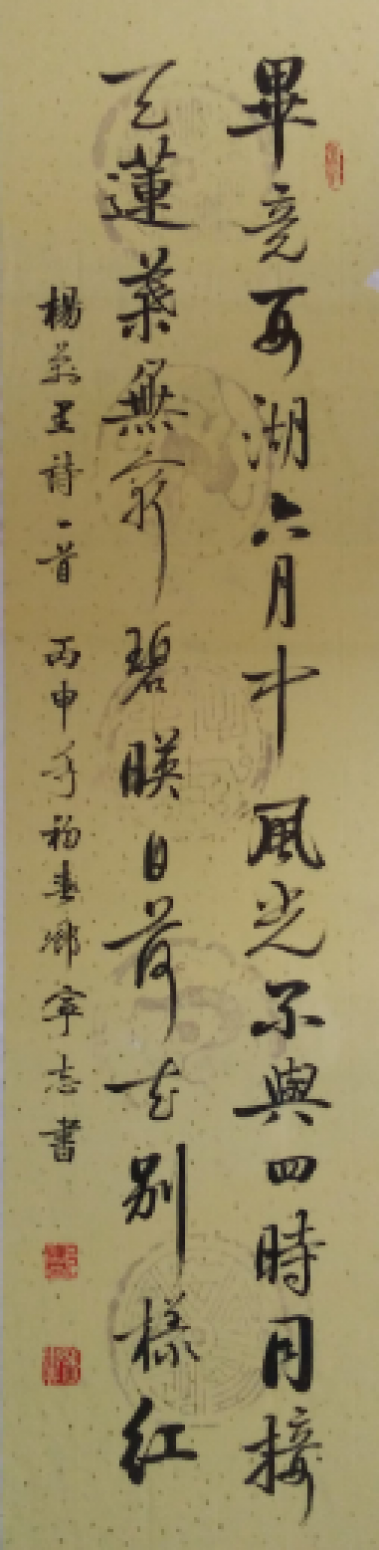 畢竟西湖六月中風光不與四時同接
天蓮葉無窮碧映日荷花別樣紅
楊萬里詩一首 丙申年初春鄉寧志書